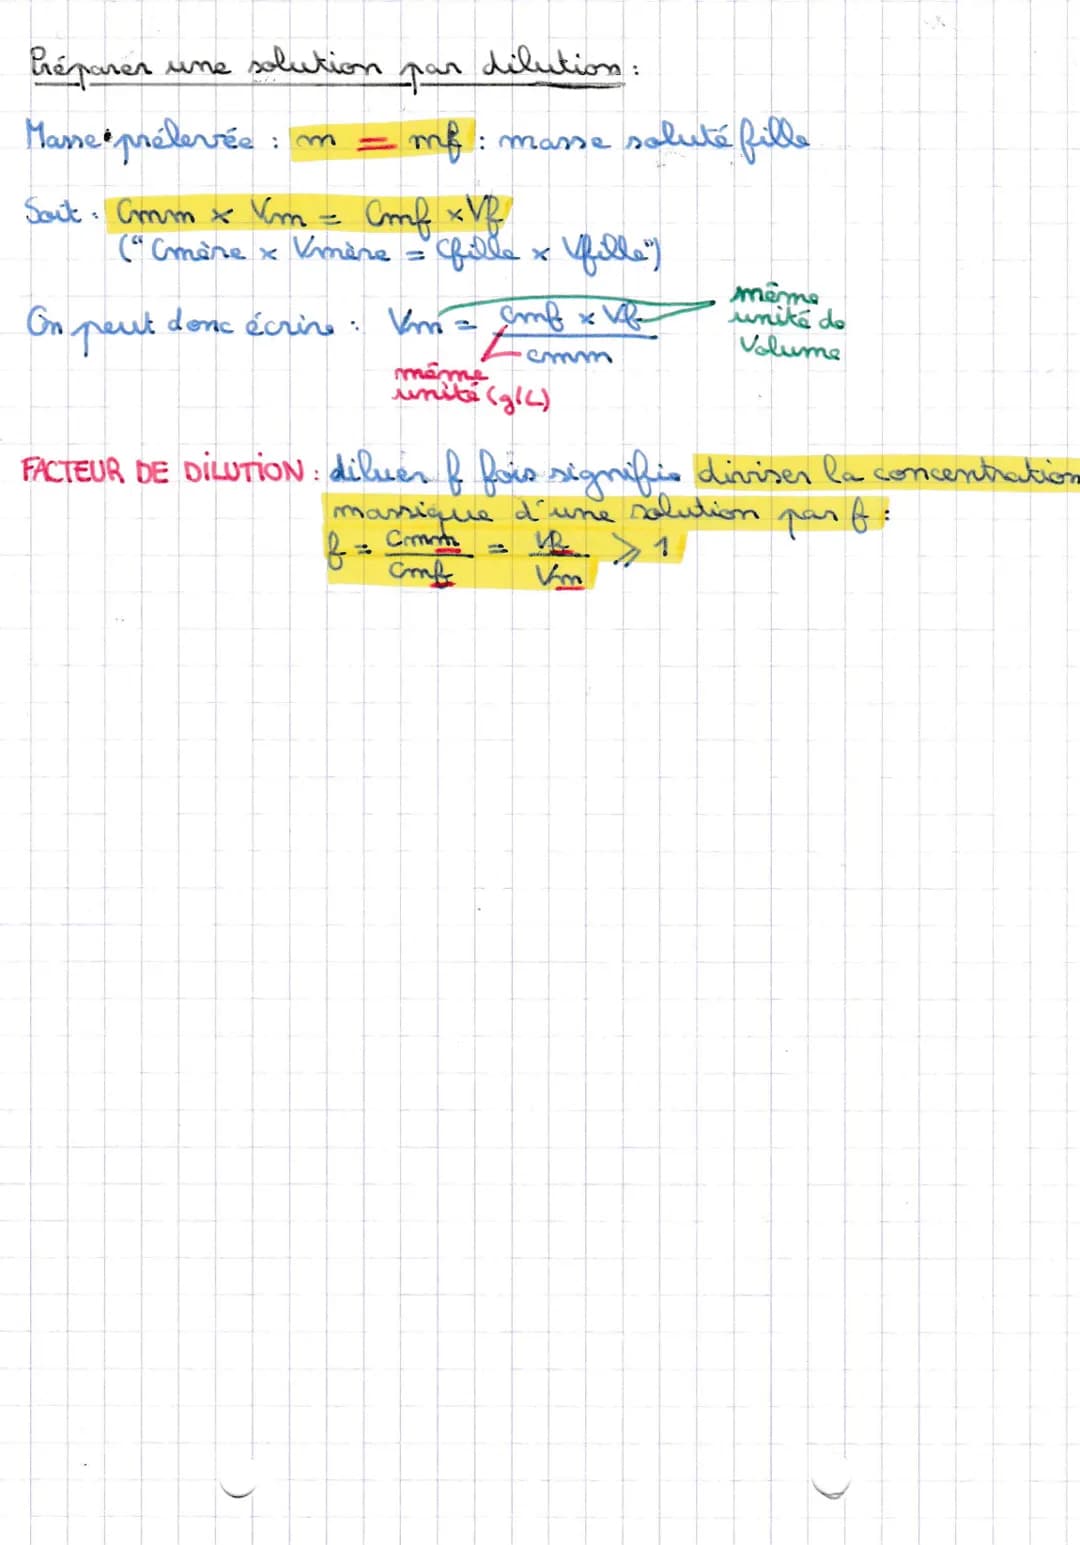 Préparer une solution par dilution :
Masse prélevée : m = mf : masse soluté fille
Soit : Cmm x Vm = Cmf x Vf
("Cmère x Vmère = Cfille x Vfille")
On peut donc écrire : Vm = Cmf x Vf / Cmm
même unité de Volume
même unité (g/L)
FACTEUR DE DILUTION : diluer f fois signifie diviser la concentration
massique d'une solution par f :
f = Cmm / Cmf = Vf / Vm ⩾ 1